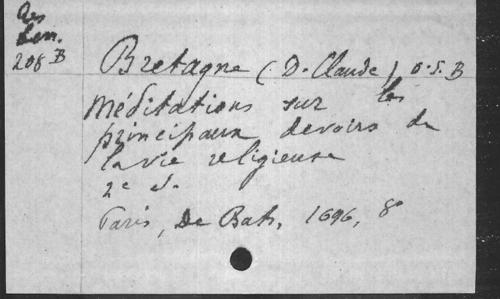 208 B
Bretagne (D. Claude) O.S.B
Méditations sur les
principaux devoirs de
la vie religieuse
2e éd.
Paris, De Bats, 1696, 8°